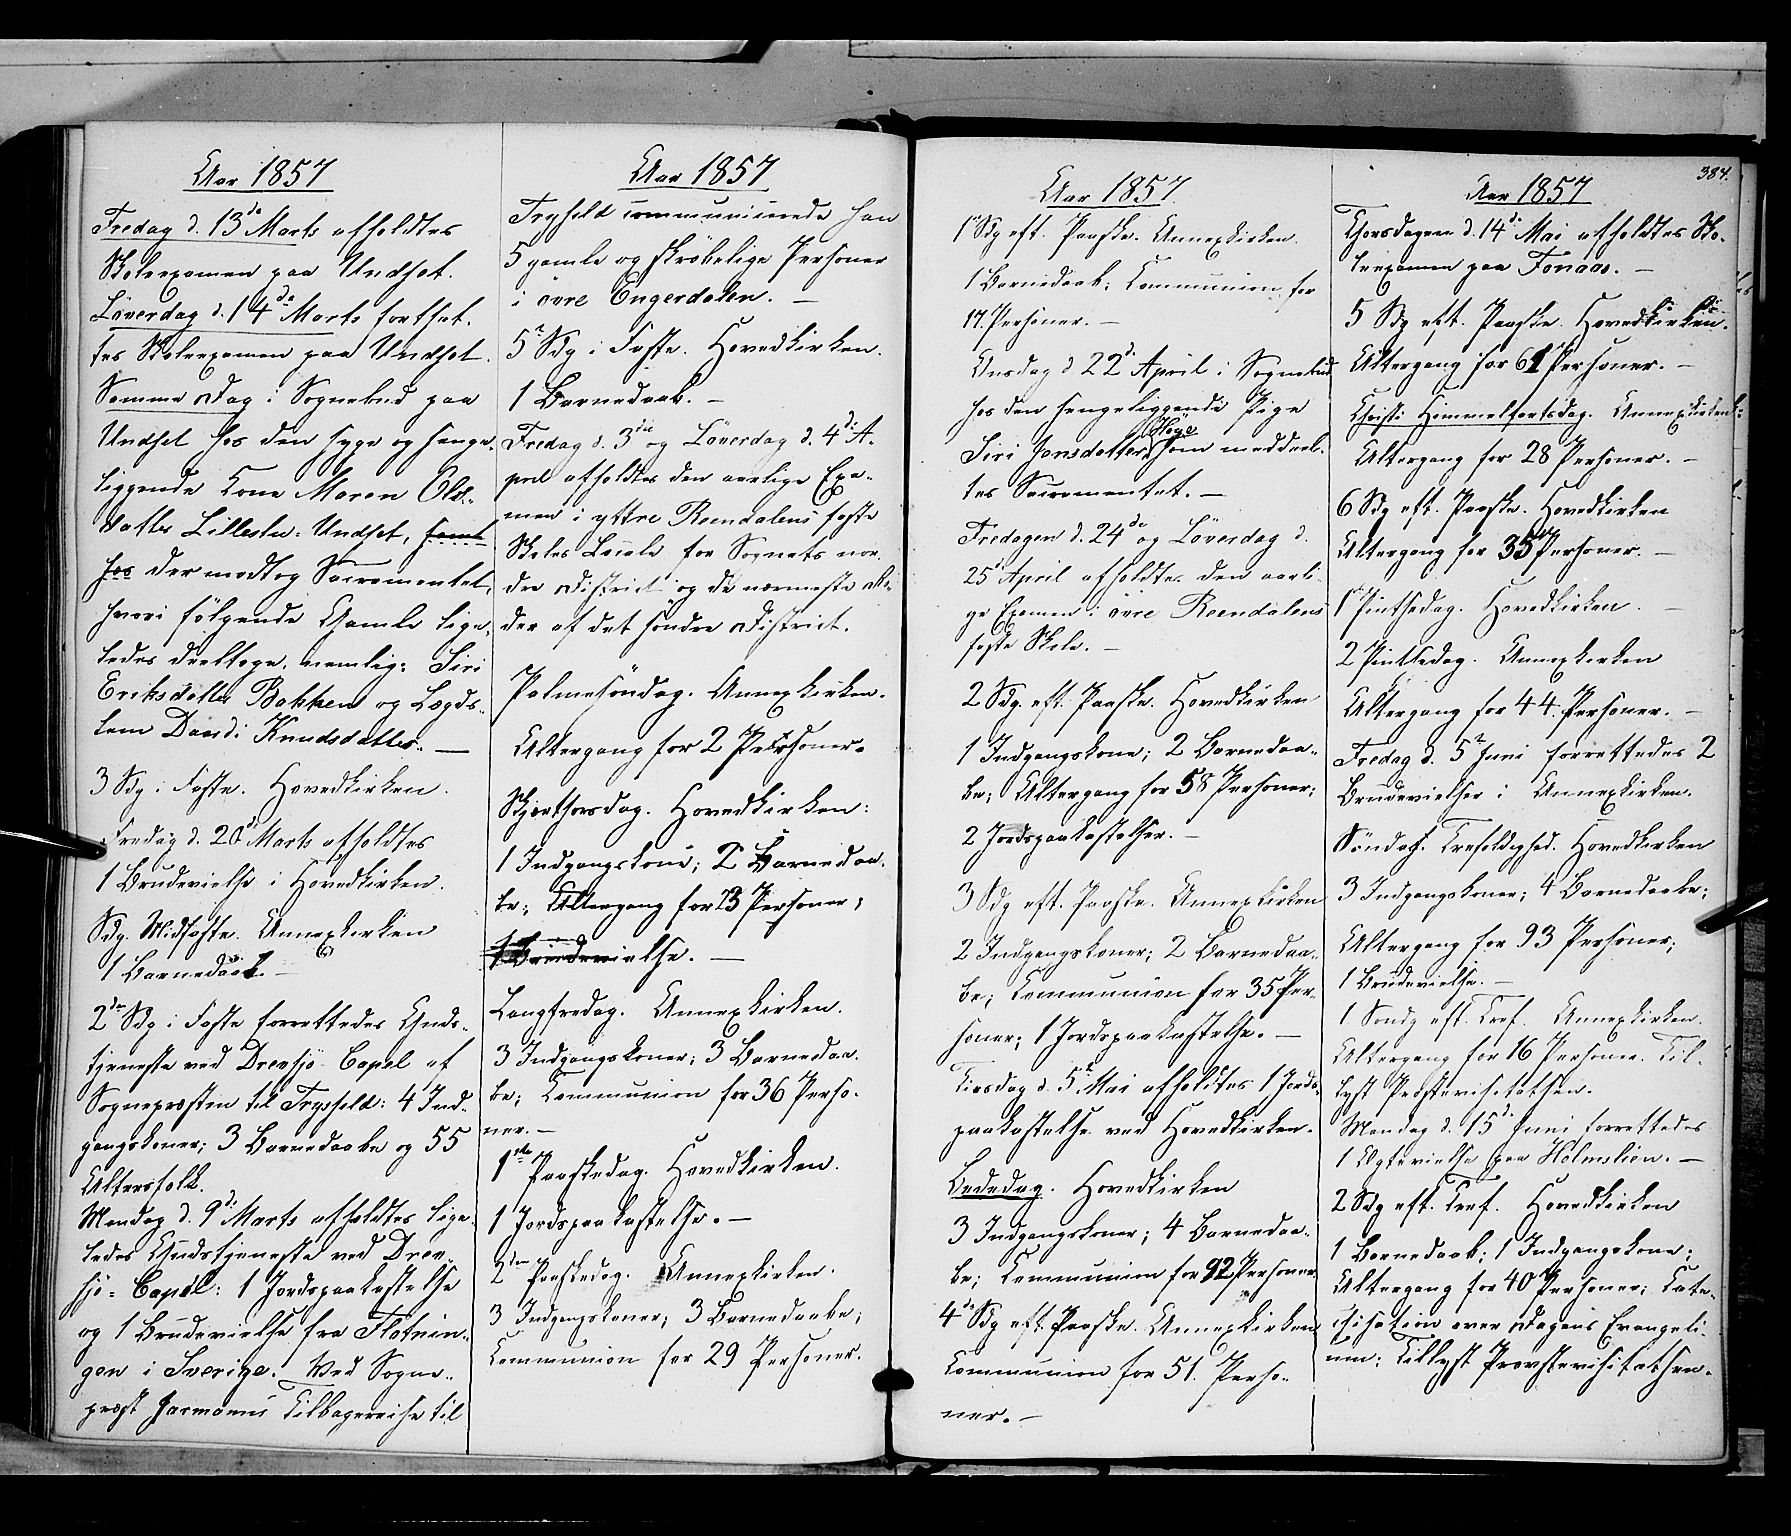 Aar 1857
Fredag d. 13de Marts afholdtes
Skoleexamen paa Undset.
Løverdag d. 14de Marts fortsat-
tes Skoleexamen paa Undset.
Samme Dag i Sognebud paa
Undset hos den syge og senge-
liggende Kone Maren Ols-
datter Lillestu-Undset, samt
hos der modtog Sacramentet,
hvori følgende Gamle lige-
ledes deeltoge, nemlig: Siri
Eriksdatter Bakken og Lægds-
lem Dardi Knudsdatter. —
3 Sdg i Faste. Hovedkirken.
Fredag d. 20de Marts afholdtes
1 Brudevielse i Hovedkirken.
Sdg. Midfaste. Annexkirken
1 Barnedaab. —
2den Sdg i Faste forrettedes Guds-
tjeneste ved Drevsjø-Capel af
Sognepræsten til Trysild: 4 Ind-
gangskoner; 3 Barnedaabe og 55
Altersfolk.
Mandag d. 9de Marts afholdtes lige-
ledes Gudstjeneste ved Drev-
sjø-Capel: 1 Jordspaakastelse
og 1 Brudevielse fra Fløtnin-
gen i Sverige. Ved Sogne-
præst Jarmanns Tilbagereise til
Aar 1857
Tryssild communicerede han
5 gamle og skrøbelige Personer
i øvre Engerdalen. —
5te Sdg i Faste. Hovedkirken.
1 Barnedaab. —
Fredag d. 3die og Løverdag d. 4de A-
pril afholdtes den aarlige Exa-
men i yttre Reendalens faste
Skoles Locale for Sognets nor-
dre District og de nærmeste De-
der af det søndre District.
Palmesøndag. Annexkirken.
Altergang for 2 Personer.
Skjærthorsdag. Hovedkirken:
1 Indgangskone; 2 Barnedaa-
be; Altergang for 23 Personer;
1 Brudevielse. —
Langfredag. Annexkirken.
3 Indgangskoner; 3 Barnedaa-
be; Communion for 36 Perso-
ner. —
1ste Paaskedag. Hovedkirken.
1 Jordspaakastelse. —
2den Paaskedag. Annexkirken.
3 Indgangskoner; 3 Barnedaabe;
Communion for 29 Personer.
Aar 1857.
1ste Sdg eft. Paaske. Annexkirken.
1 Barnedaab; Communion for
17. Personer. —
Onsdag d 22de April i Sognebud
hos den sengeliggende Pige
Høye
Siri Jonsdatter, som meddeel-
tes Sacramentet. —
Fredagen d. 24de og Løverdag d.
25de April afholdtes den aarli-
ge Examen i øvre Reendalens
faste Skole. —
2 Sdg eft. Paaske. Hovedkirken
1 Indgangskone; 2 Barnedaa-
be; Altergang for 58 Personer;
2 Jordspaakastelser. —
3 Sdg eft. Paaske. Annexkirken
2 Indgangskoner; 2 Barnedaa-
be; Communion for 35 Per-
soner; 1 Jordspaakastelse. —
Tirsdag d. 5te Mai afholdtes 1 Jords-
paakastelse ved Hovedkirken.
Bededag. Hovedkirken
3 Indgangskoner; 4 Barnedaa-
be; Communion for 92 Personer
4de Sdg eft. Paaske. Annexkirken
Communion for 51. Perso-
ner. —
384.
Aar 1857
Thorsdagen d. 14de Mai afholdtes Sko-
leexamen paa Fonaas. —
5 Sdg eft. Paaske. Hovedkirken.
Altergang for 61 Personer. —
Christi Himmelfartsdag. Annexkirken:
Altergang for 28 Personer. —
6 Sdg eft. Paaske. Hovedkirken
Altergang for 35 Personer. —
1ste Pintsedag. Hovedkirken. —
2 Pintsedag. Annexkirken
Altergang for 44. Personer. —
Fredag d. 5te Juni forrettedes 2
Brudevielser i Annexkirken.
Søndag. Trefoldighed. Hovedkirken
3 Indgangskoner; 4 Barnedaabe;
Altergang for 93 Personer;
1 Brudevielse. —
1. Søndg eft. Tref. Annexkirken.
Altergang for 16 Personer. Til-
lyst Provstevisitatsen.
Mandag d. 15de Juni forrettedes
1 Ægtevielse paa Holmslien. —
2 Sdg eft. Tref. Hovedkirken
1 Barnedaab; 1 Indgangskone;
Altergang for 40 Personer; Cate-
chisation over Dagens Evangeli-
um; Tillyst Provstevisitatsen.